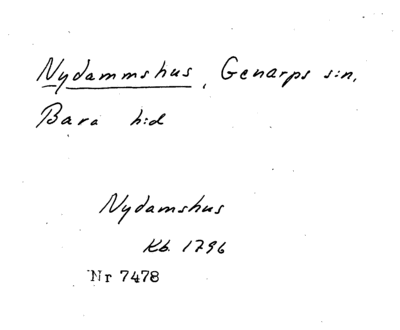 Nydammshus, Genarps s:n,
Bara h:d
Nydamshus
Kb. 1796
Nr 7478